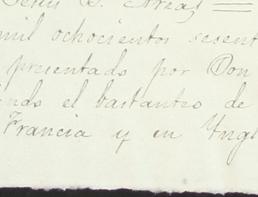 Jesus D. Arias
mil ochocientos sesent
presentado por Don
endo el bastanteo de
Francia y en Yngl